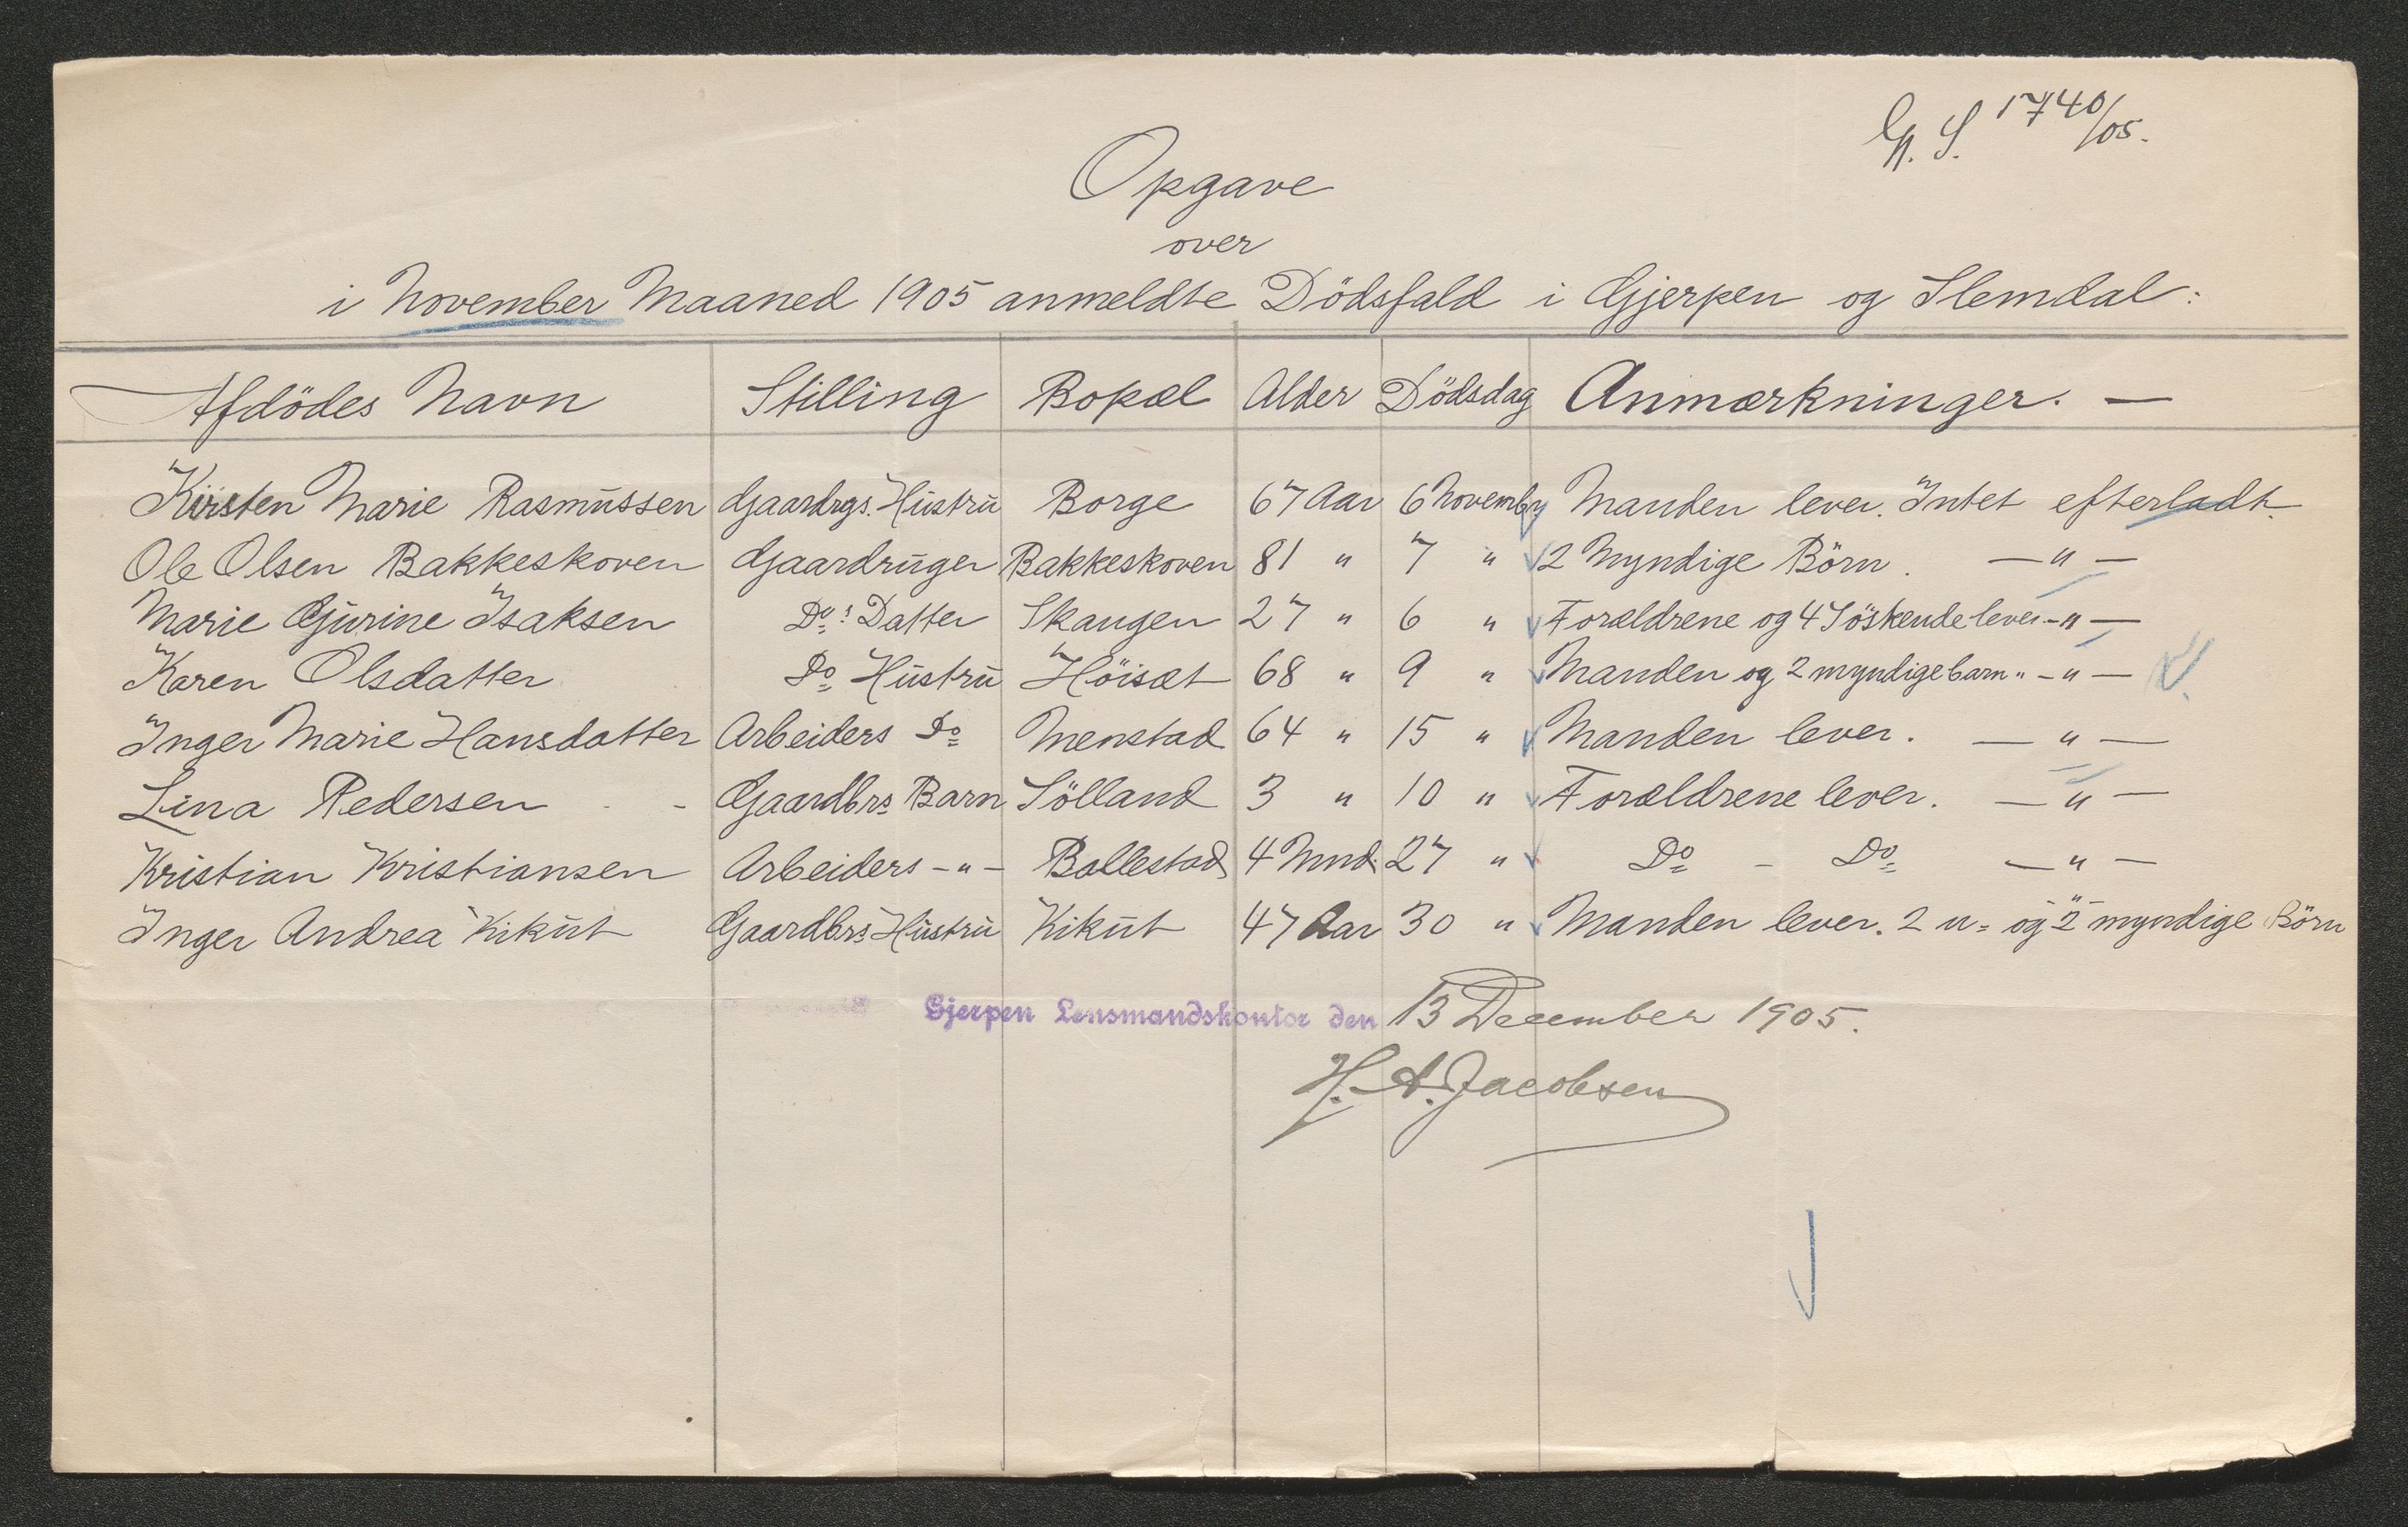 S. 1740/05.
Opgave
over
i November Maaned 1905 anmeldte Dödsfald i Gjerpen og Slemdal:
Afdödes Navn Stilling Bopæl Alder Dödsdag Anmærkninger. —
Kirsten Marie Rasmussen Gaardrgs. Hustru Borge 67 Aar 6 Novembr Manden lever. Intet efterladt.
Ole Olsen Bakkeskoven Gaardruger Bakkeskoven 81 " 7 " 2 Myndige Börn. — " —
Marie Gurine Isaksen Do s Datter Skaugen 27 " 6 " Forældrene og 4 Söskende lever - " —
Karen Olsdatter Do Hustru Höisæt 68 " 9 " Manden og 2 myndige barn " - " —
Inger Marie Hansdatter Arbeiders Do Menstad 64 " 15 " Manden lever. — " —
Lina Pedersen - - Gaardbrs Barn Sölland 3 " 10 " Forældrene lever. — " —
Kristian Kristiansen Arbeiders - " - Ballestad 4 Mnd. 27 " Do - Do — " —
Inger Andrea Kikut Gaardbrs Hustru Kikut 47 Aar 30 " Manden lever. 2 u= og 2 myndige Börn
Gjerpen Lensmandskontor den 13 December 1905.
H. A. Jacobsen